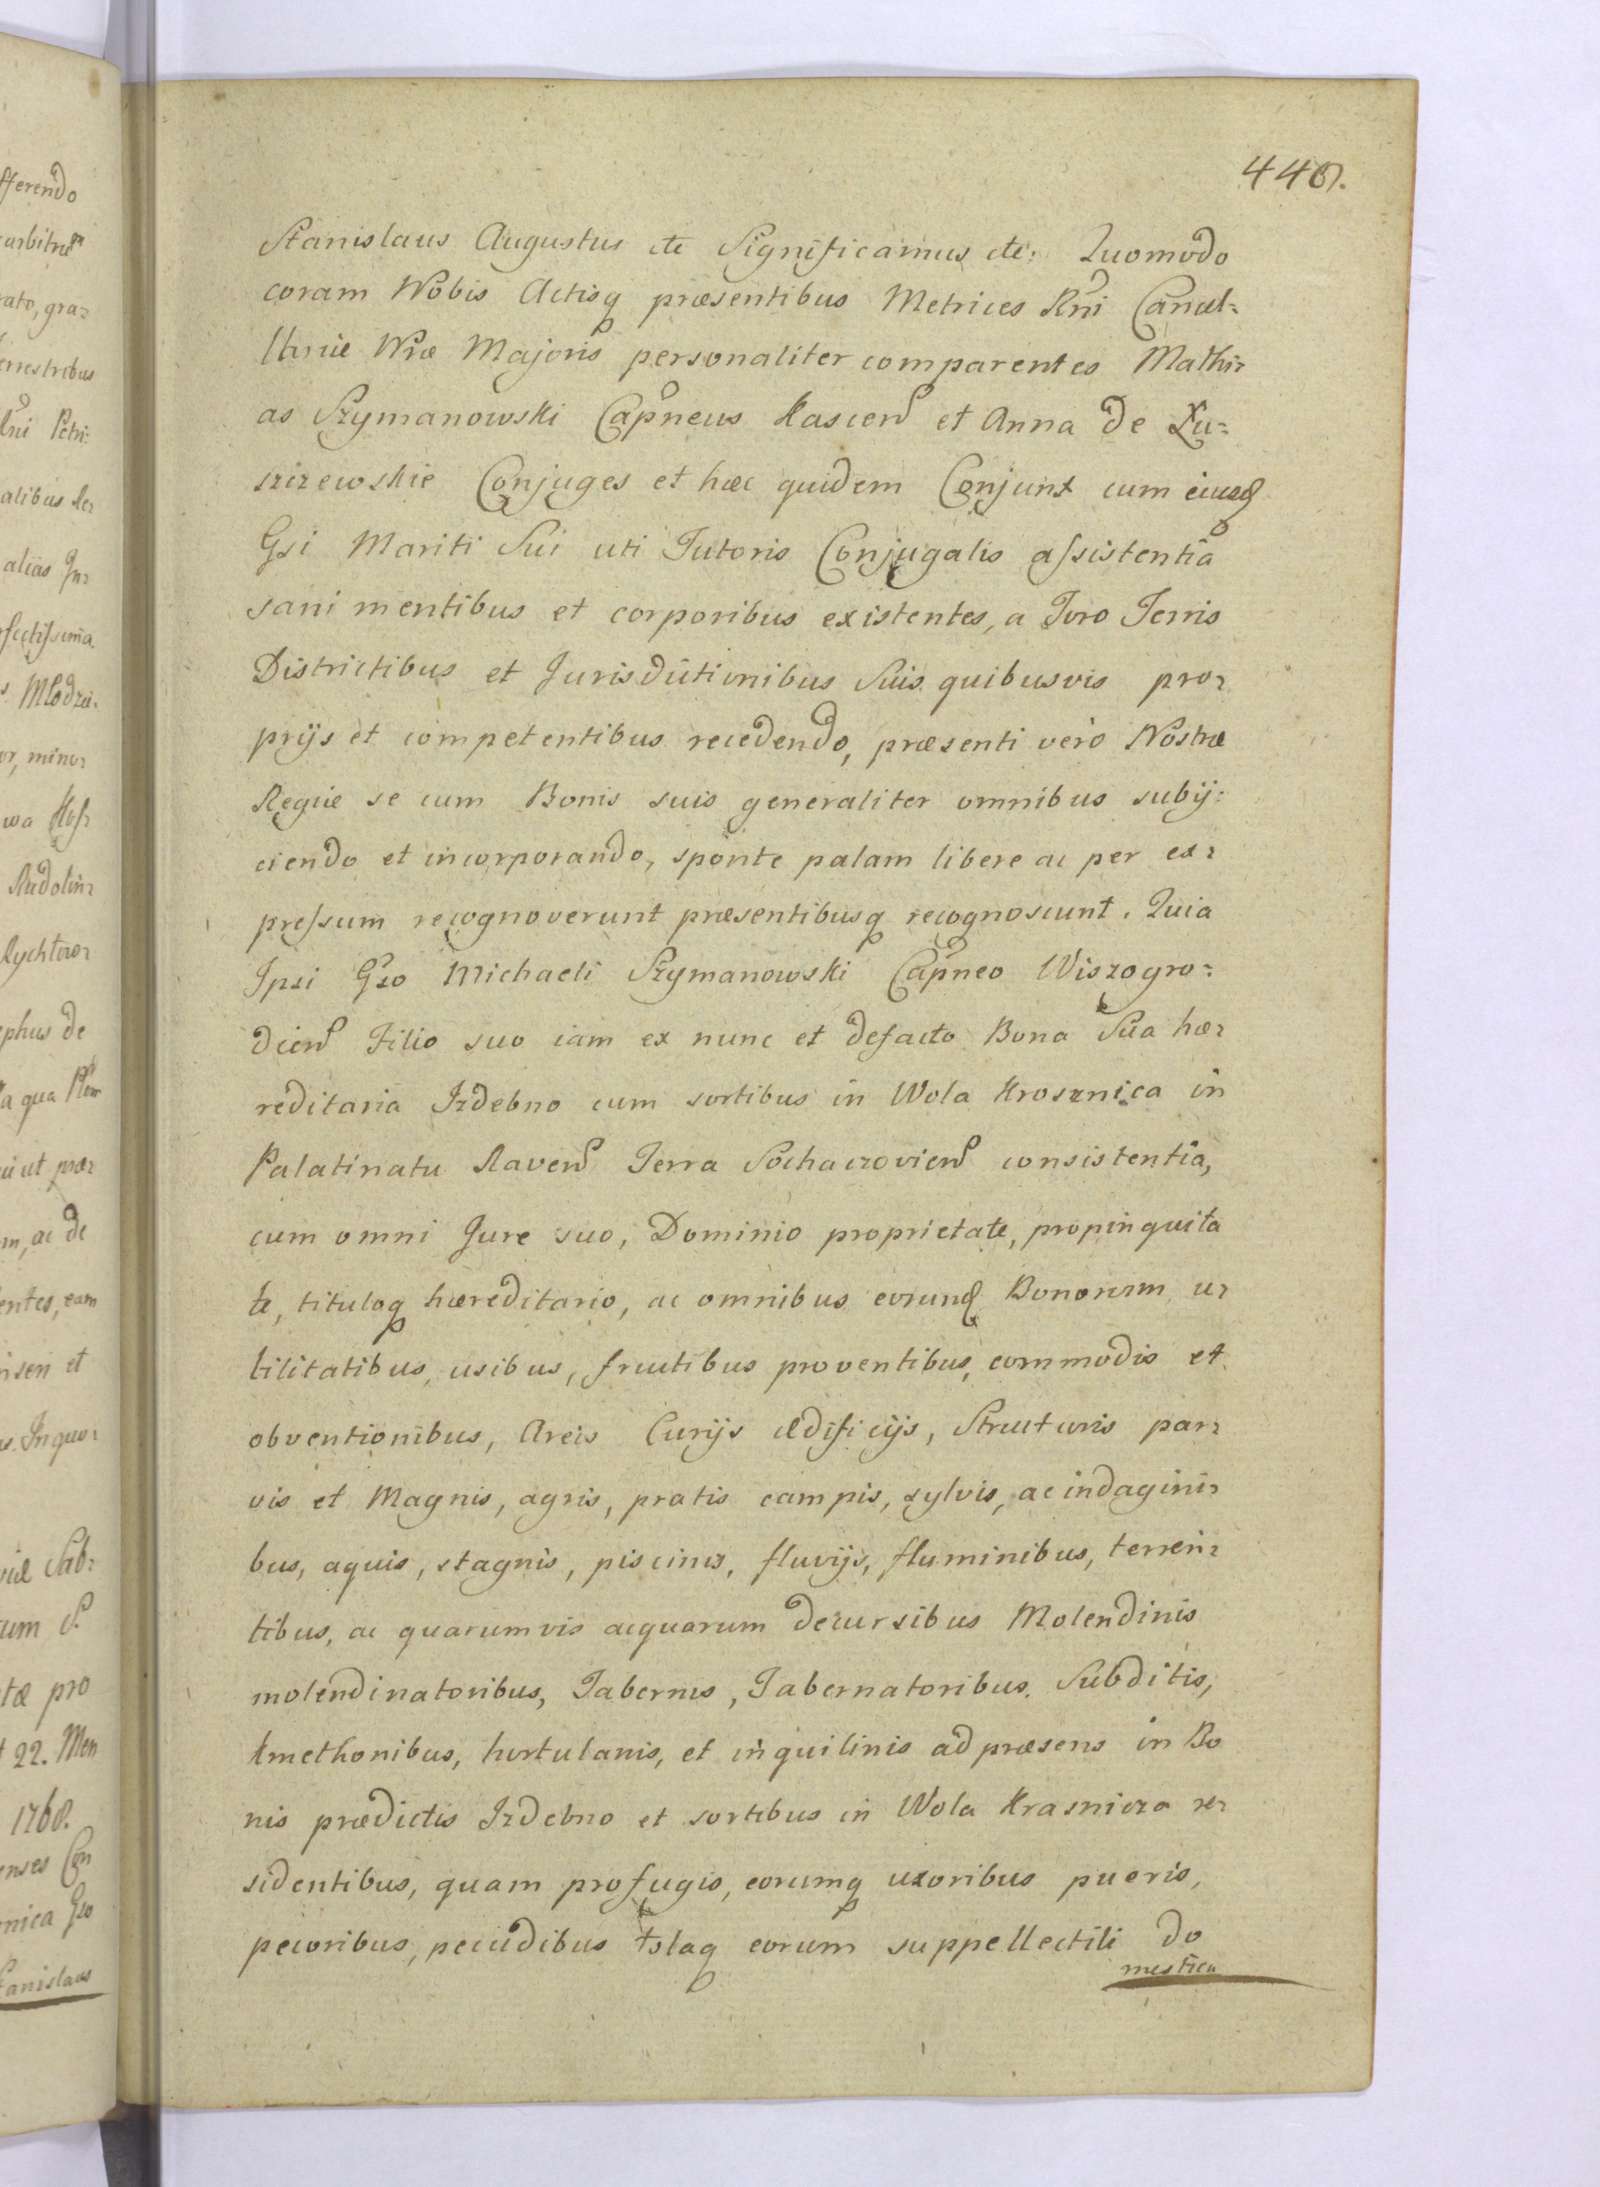 440.
Stanislaus Augustus etc Significamus etc: Quomodo
coram Nobis Actisq præsentibus Metrices Rni Cancel=
llariæ Nræ Majoris personaliter comparentes Mathi=
as Szymanowski Capneus Kascen et Anna de Łu=
szczewskie Conjuges et hæc quidem Conjunx cum eiusd
Gsi Mariti Sui uti Tutoris Conjugalis assistentia
sani mentibus et corporibus existentes, a Foro Terris
Districtibus et Jurisdictionibus Suis quibusvis pro=
prijs et competentibus recedendo, præsenti vero Nostræ
Regiæ se cum Bonis suis generaliter omnibus subij=
ciendo et incorporando, sponte palam libere ac per ex=
pressum recognoverunt præsentibusq recognoscunt. Quia
Ipsi Gso Michaeli Szymanowski Capneo Wiszogro=
dien Filio suo iam ex nunc et defacto Bona Sua hæ=
reditaria Izdebno cum sortibus in Wola Krosznica in
Palatinatu Raven Terra Sochaczovien consistentia,
cum omni Jure suo, Dominio proprietate, propinquita
te, tituloq hæreditario, ac omnibus eorund Bonorum u=
tilitatibus, usibus, fructibus proventibus, commodis et
obventionibus, Areis Curijs ædificijs, Structuris par=
vis et Magnis, agris, pratis campis, sylvis, ac indagini=
bus, aquis, stagnis, piscinis, fluvijs, fluminibus, terren=
tibus, ac quarumvis acquarum decursibus Molendinis
molendinatoribus, Tabernis, Tabernatoribus, Subditis,
kmethonibus, hortulanis, et inquilinis ad præsens in Bo
nis prædictis Izdebno et sortibus in Wola Krasnicza re=
sidentibus, quam profugis, eorumq uxoribus pueris,
pecoribus, pecudibus totaq eorum suppellectili do
mestica